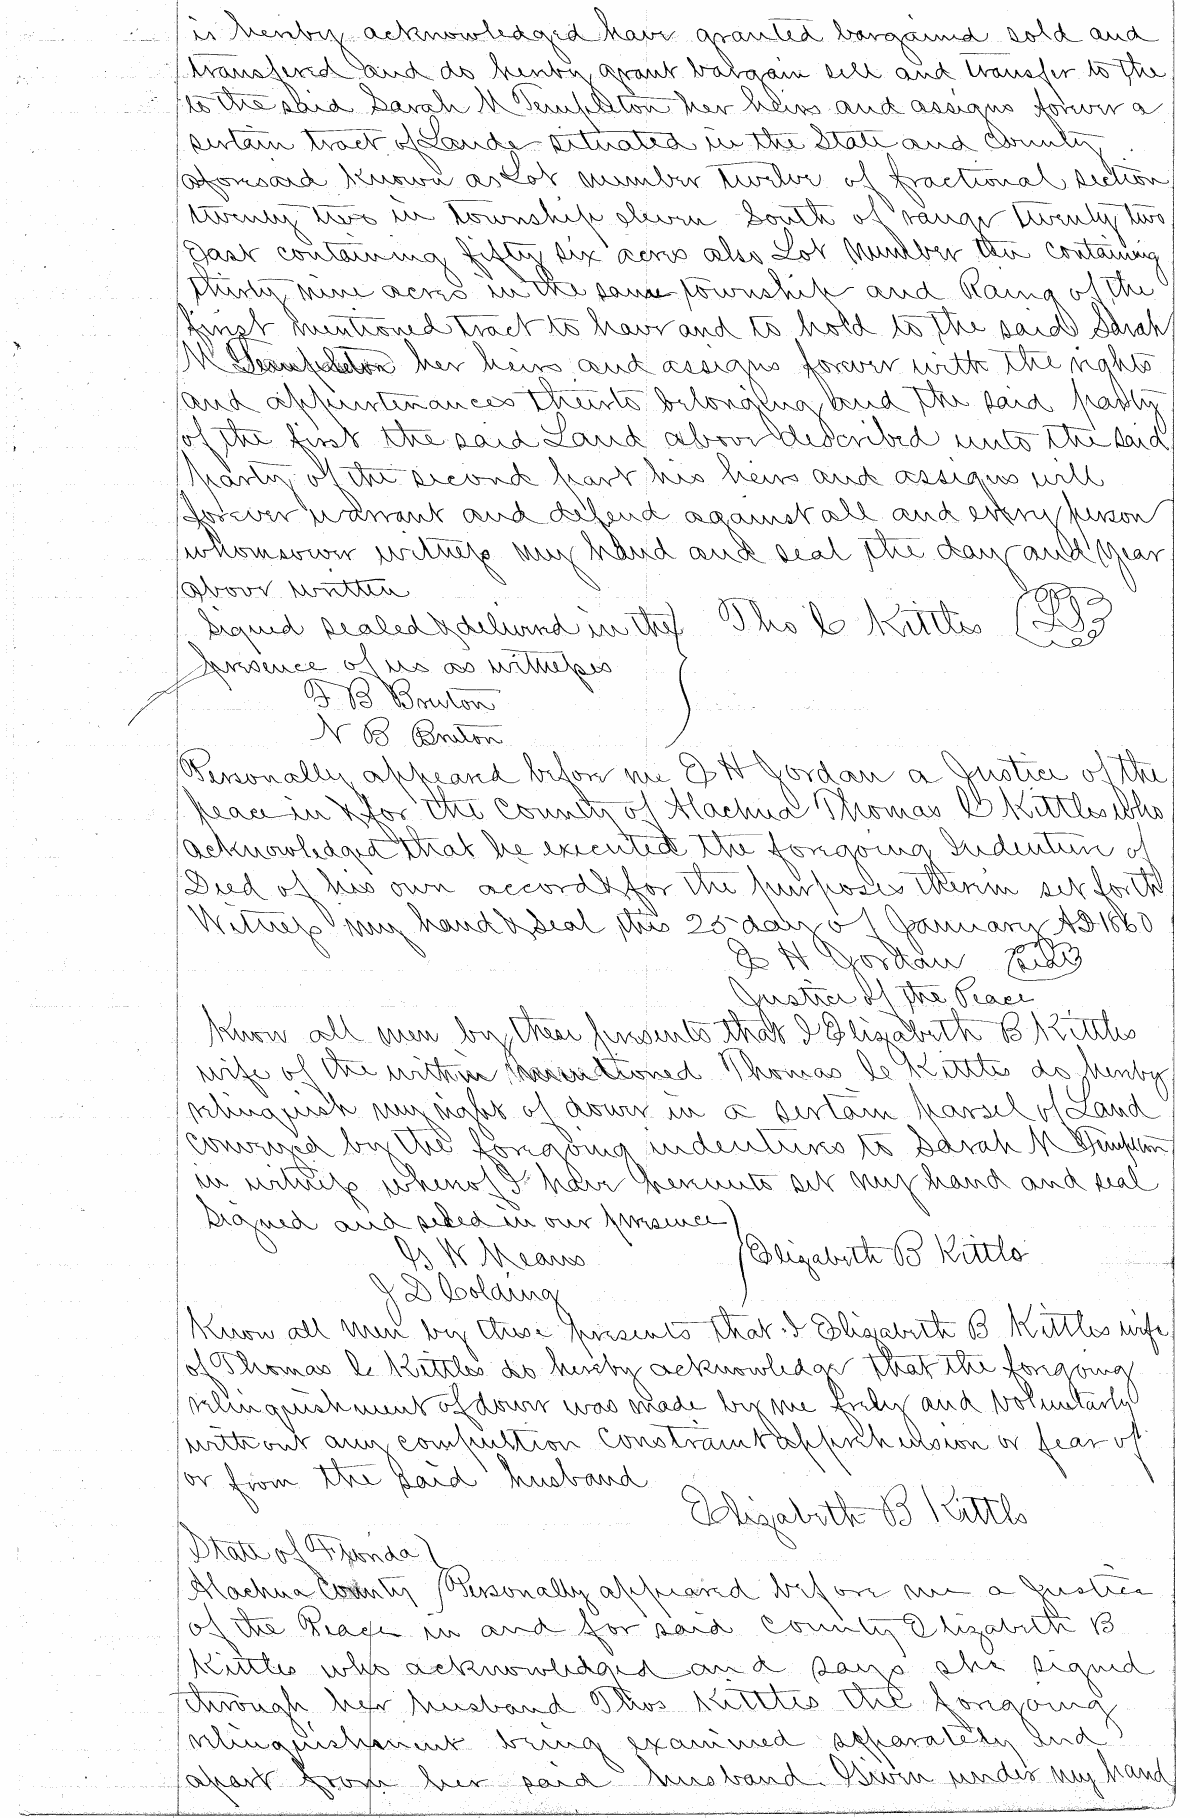 is hereby acknowledged have granted bargaind sold and
transfered and do hereby grant bargain sell and transfer to the
to the said Sarah N Templeton her heirs and assigns forever a
sertain tract of Lande situated in the State and County
aforesaid known as Lot number twelve of fractional section
twenty two in township eleven South of range twenty two
East containing fifty six acres also Lot Number ten containing
thirty nine acres in the same township and Raing of the
first mentioned tract to have and to hold to the said Sarah
N Teampleton her heirs and assigns forever with the rights
and appurtenances thereto belonging and the said party
of the first the said Land above described unto the said
party of the second part his heirs and assigns will
forever warrant and defend against all and every person
whomsoever witness my hand and seal the day and year
above written
Signed sealed & deliverd in the } Tho C Kittles LS
presence of us as witnesses
F B Bruton
N B Bruton
Personally appeared before me E H Jordan a Justice of the
peace in & for the County of Alachua Thomas C Kittles who
acknowledged that he executed the foregoing Indenture of
Deed of his own accord & for the purposes therein set forth
Witness my hand & Seal this 25 day of January AD 1860
E H Jordan Seal
Justice of the Peace
Know all men by these presents that I Elizabeth B Kittles
wife of the within mentioned Thomas C Kittles do hereby
relinquish my right of dower in a sertain parsel of Land
conveyed by the foregoing indentures to Sarah N Templton
in witness whereof I have hereunto set my hand and seal
Signed and seled in our presence )
G W Means ) Elizabeth B Kittls
J D Colding
Know all Men by these presents that I Elizabeth B Kittles wife
of Thomas C Kittles do hereby acknowledge that the foregoing
relinquishment of dower was made by me frely and Voluntarly
without any compultion Constraint apprehension or fear of
or from the said husband
Elizabeth B Kittls
State of Florida )
Alachua County ) Personally appeared before me a Justice
of the Peace in and for said County Elizabeth B
Kittles who acknowledged and says she signed
through her husband Thos Kittles the foregoing
relinquishment being examined separately and
apart from her said husband. Given under my hand